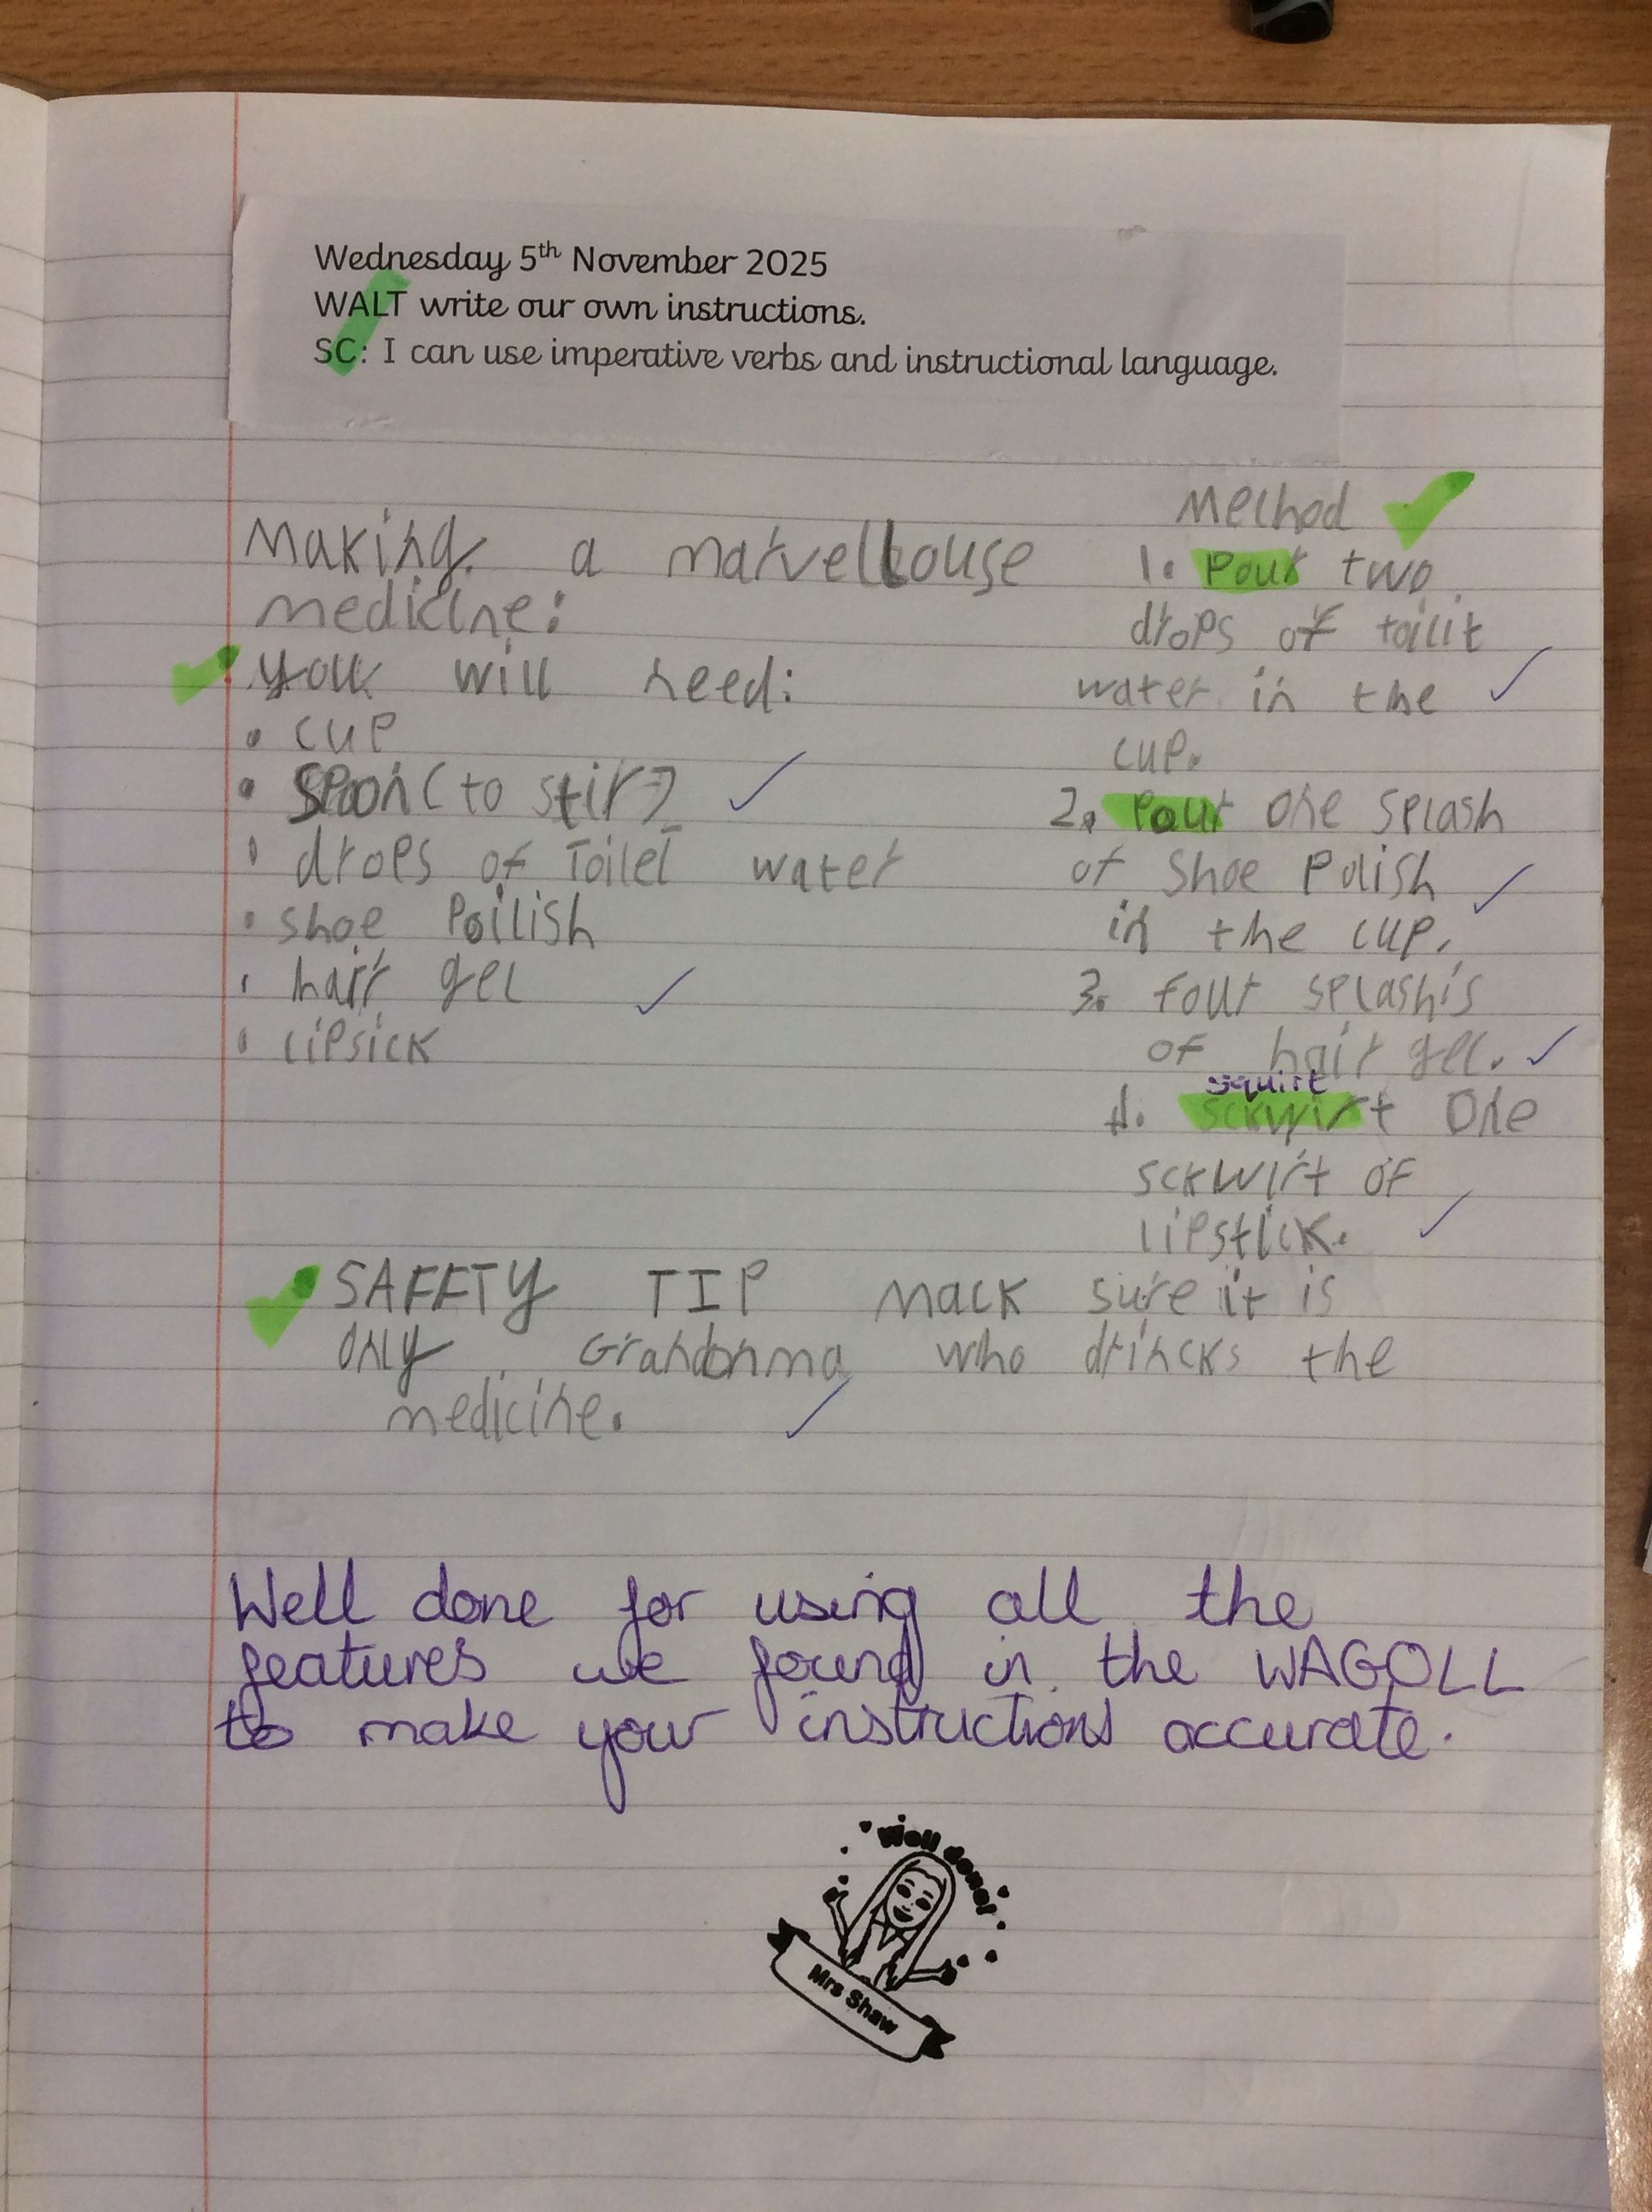 Wednesday 5th November 2025
WALT write our own instructions.
SC: I can use imperative verbs and instructional language.
Making a marvellouse
medicine:
you will need:
• cup
• Spoon (to stir)
• drops of Toilet water
• shoe Poilish
• hair gel
• Lipsick
Method
1. Pour two
drops of toilit
water in the
cup.
2. Pour one splash
of Shoe Polish
in the cup.
3. four splash's
of hair gel.
squirt
4. sckwirt One
sckwirt of
Lipstick.
SAFETY TIP Mack sure it is
only Grandonma who drincks the
medicine.
Well done for using all the
features we found in the WAGOLL
to make your instructions accurate.
Well done!
Mrs Shaw